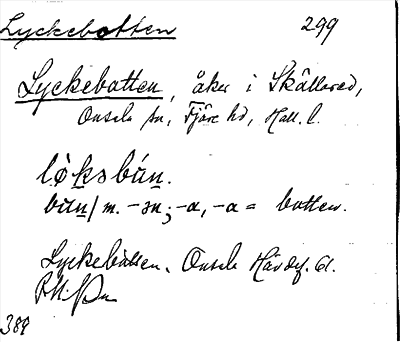 Lyckebotten 299
Lyckebotten, åker i Skällared,
Onsala sn, Fjäre hd, Hall. l.
lø̀ksbún.
bún/ m. -ən; -a, -a = botten.
Lyckebotten. Onsala Härdef. 61.
389